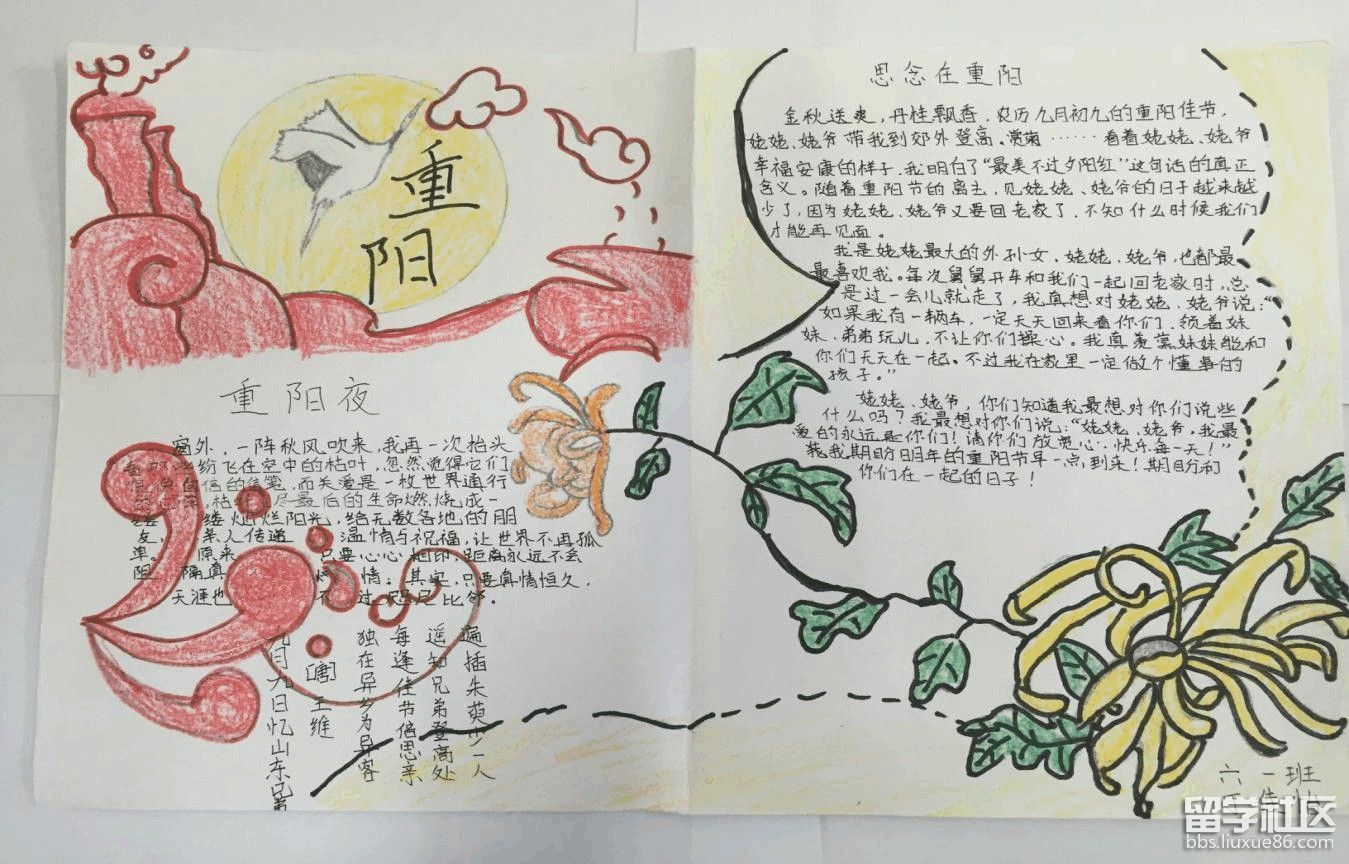 重阳
重阳夜
窗外，一阵秋风吹来，我再一次抬头
纷飞在空中的枯叶，忽然觉得它们
自信的信笺，而关爱是一枚世界通行
尽最后的生命燃烧成一
缕灿烂阳光，给无数各地的朋
友，亲人传递温情与祝福，让世界不再孤
单。原来只要心心相印，距离永远不会
阻隔真情；其实，只要真情恒久，
天涯也不过咫尺比邻。
九月九日忆山东兄弟
[唐]王维
独在异乡为异客
每逢佳节倍思亲
遥知兄弟登高处
遍插朱萸少一人
思念在重阳
金秋送爽，丹桂飘香，农历九月初九的重阳佳节，
姥姥、姥爷带我到郊外登高。赏菊……看着姥姥、姥爷
幸福安康的样子，我明白了“最美不过夕阳红”这句话的真正
含义。随着重阳节的离去，见姥姥、姥爷的日子越来越
少了，因为姥姥、姥爷又要回老家了，不知什么时候我们
才能再见面。
我是姥姥最大的外孙女，姥姥、姥爷，也都最
最喜欢我。每次舅舅开车和我们一起回老家时，总
是过一会儿就走了，我真想对姥姥、姥爷说：“
如果我有一辆车，一定天天回来看你们，领着妹
妹、弟弟玩儿，不让你们操心。我真羡慕妹妹能和
你们天天在一起。不过我在家里一定做个懂事的
孩子。”
姥姥、姥爷，你们知道我最想对你们说些
什么吗？我最想对你们说：“姥姥、姥爷，我最
爱的永远是你们！请你们放宽心，快乐每一天！”
我期盼明年的重阳节早一点到来！期盼和
你们在一起的日子！
六一班
留学社区
bbs.liuxue86.com